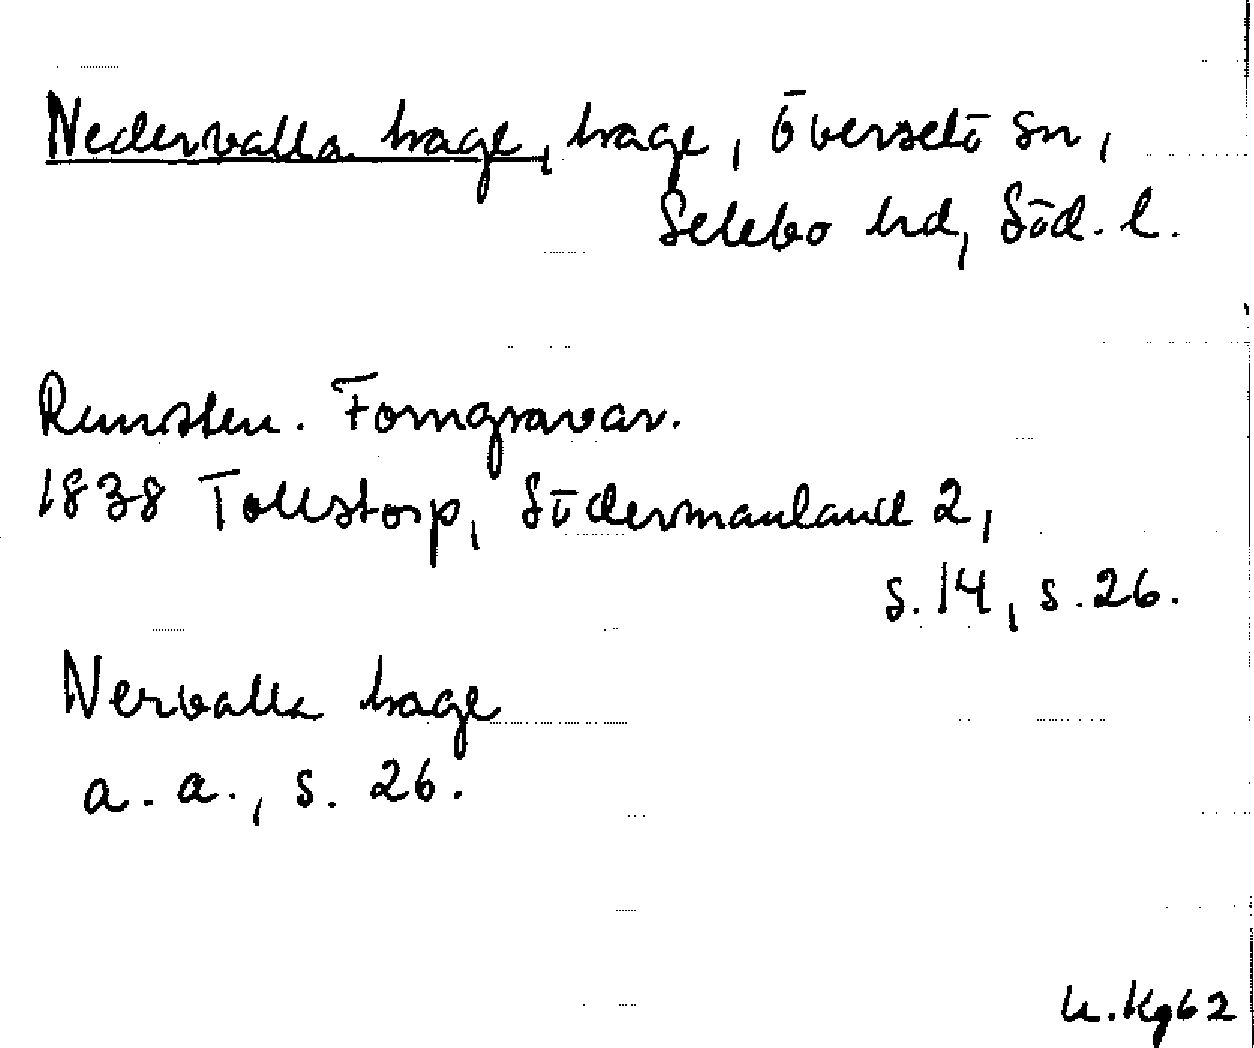 Nedervalla hage, hage, Överselö sn,
Selebo hd, Söd. l.
Runsten. Forngravar.
1838 Tollstorp, Södermanland 2,
s. 14, s. 26.
Nervalla hage
a. a., s. 26.
u. Kg62